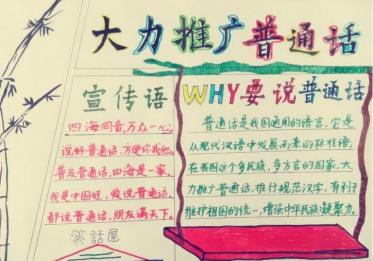 大力推广普通话
宣传语
四海同音,万众一心;
说好普通话,方便你我他。
普及普通话,四海是一家。
我是中国娃,爱说普通话。
都说普通话,朋友满天下。
笑话屋
WHY要说普通话
普通话是我国通用的语言,它是
从现代汉语中发展而来的标准语。
在我国这个多民族、多方言的国家,大
力推广普通话,推行规范汉字,有利于
维护祖国的统一,增强中华民族凝聚力。